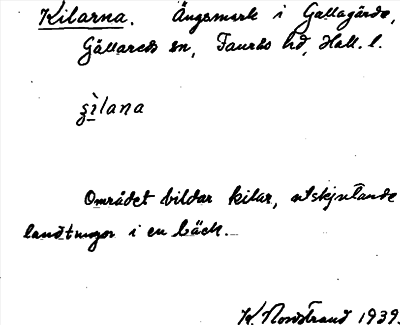 Kilarna. Ängsmark i Gallagärde,
Gällareds sn, Faurås hd, Hall. l.
şìlana
Området bildar kilar, utskjutande
landtungor i en bäck.
K. Nordstrand 1939.